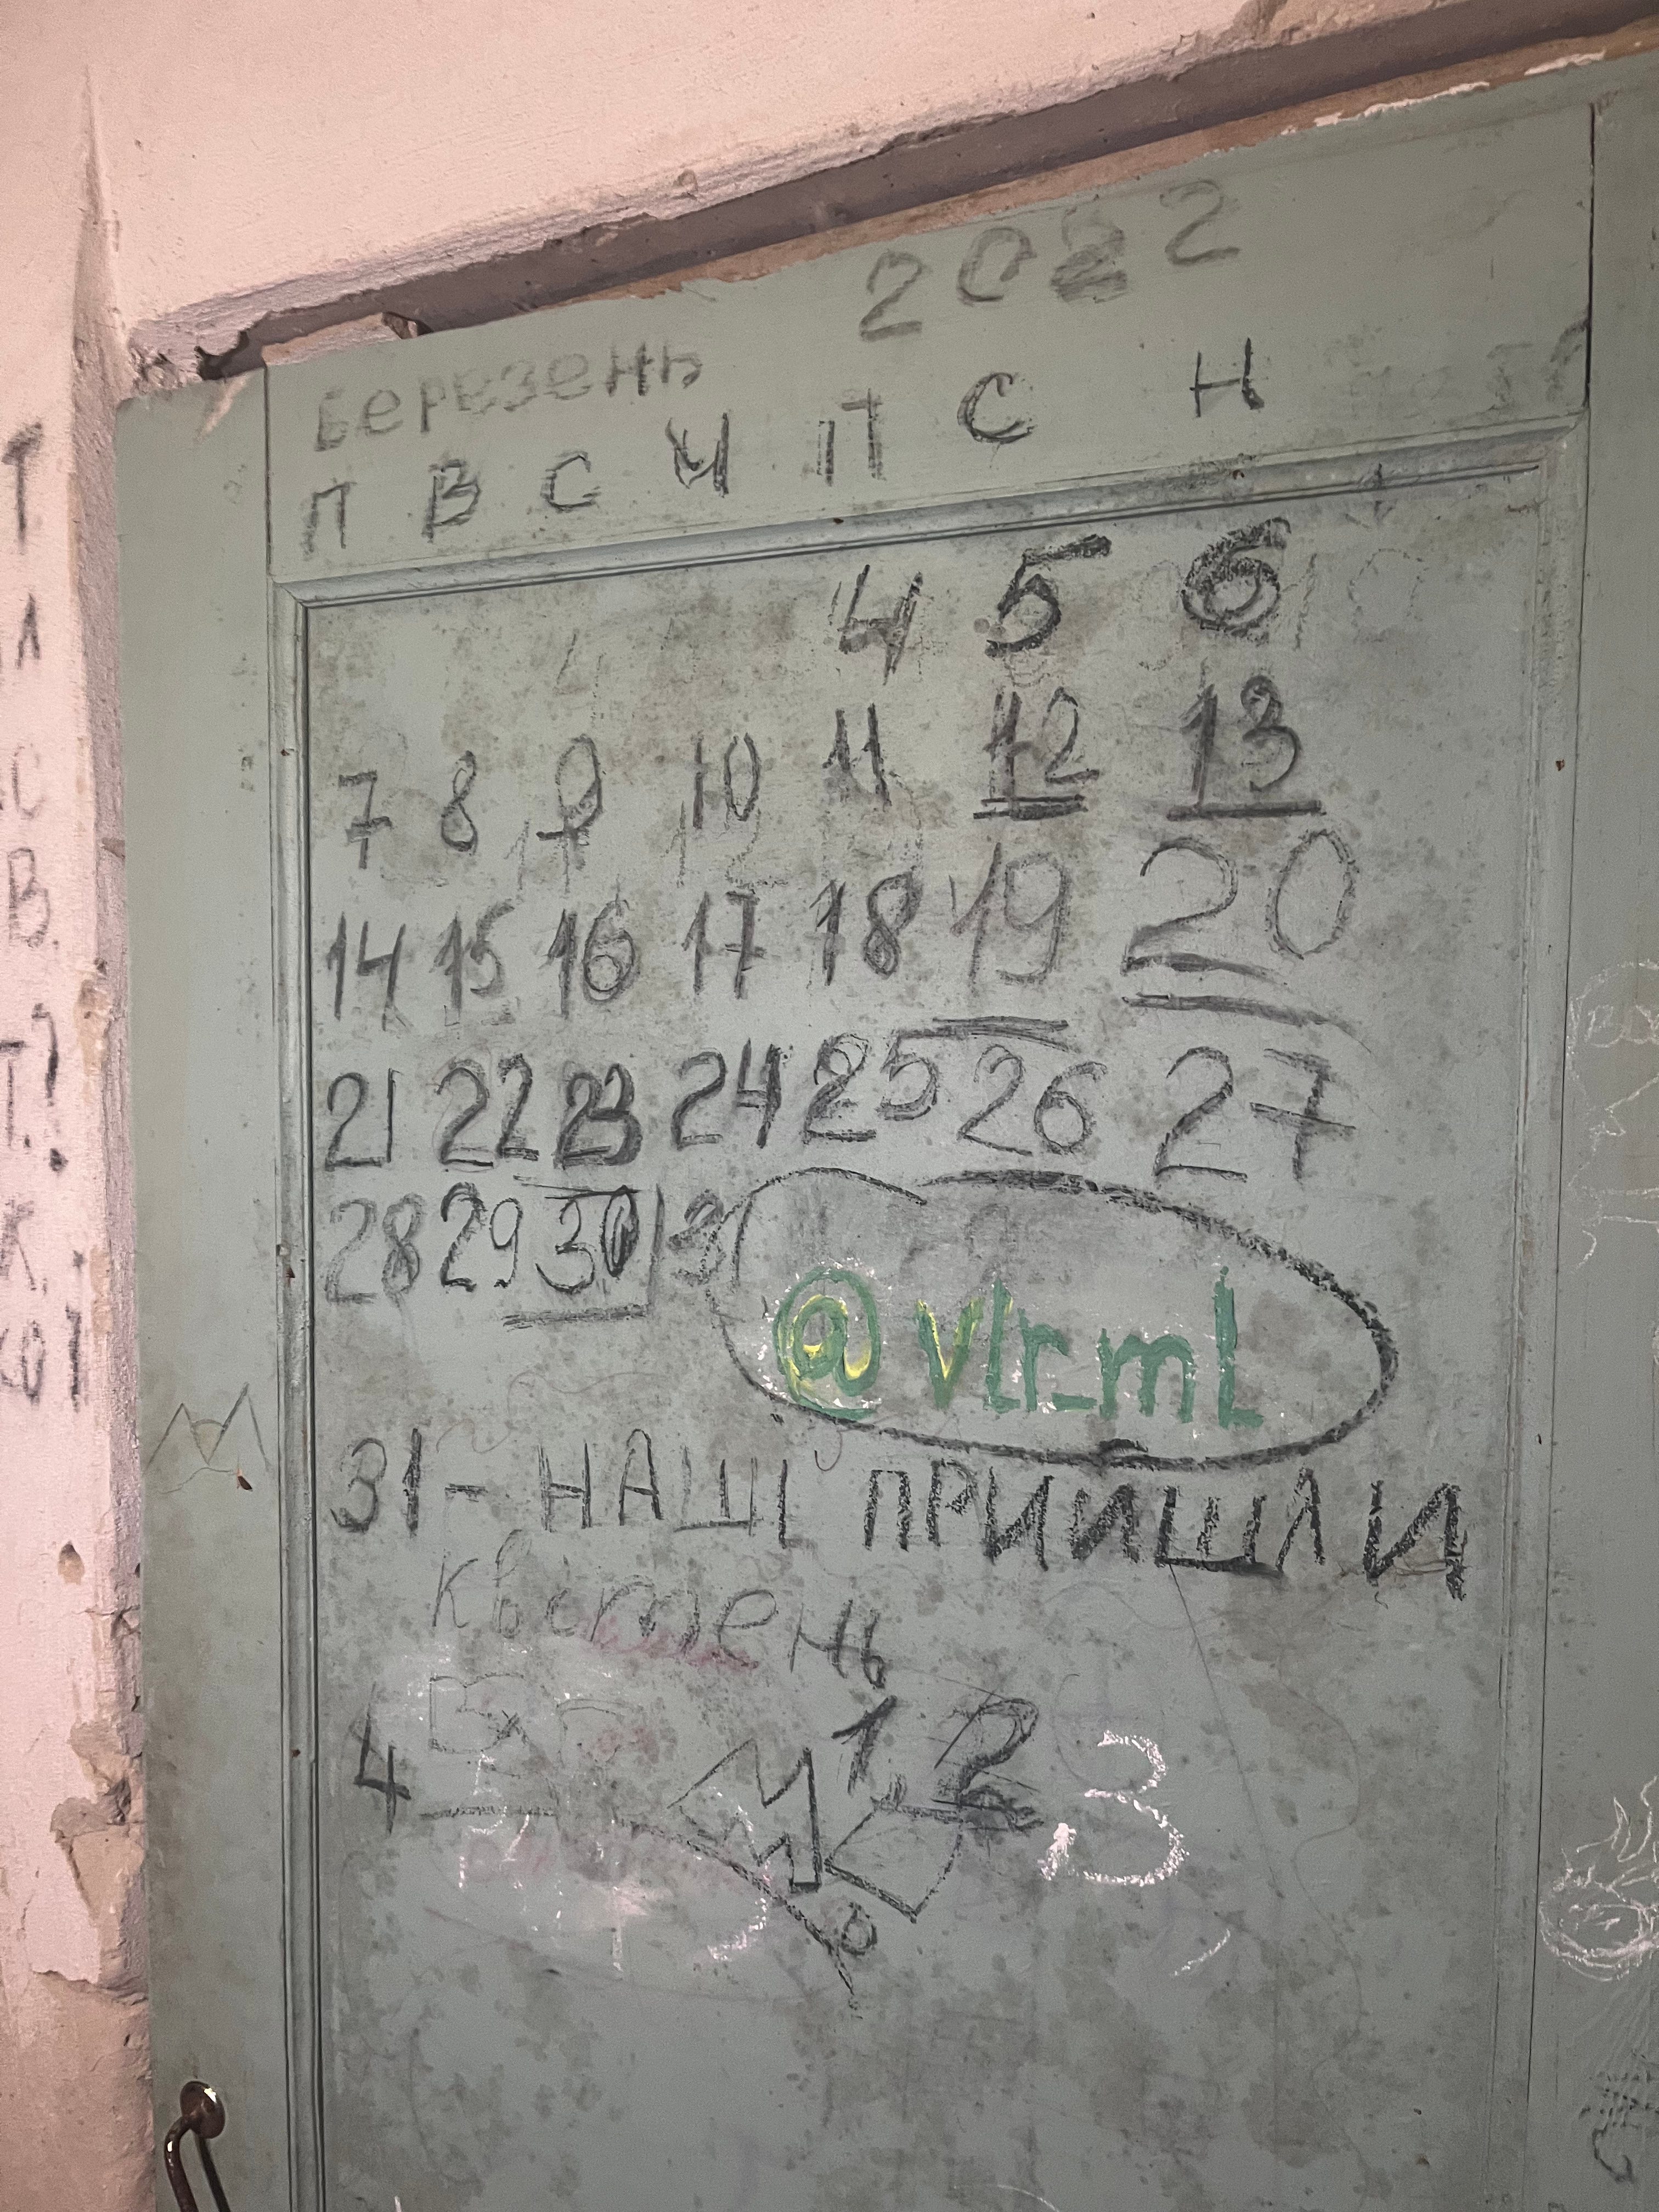 2022
березень
П В С Ч П С Н
4 5 6
7 8 9 10 11 12 13
14 15 16 17 18 19 20
21 22 23 24 25 26 27
28 29 30 31
@vlr_ml
31 - НАШІ ПРИЙШЛИ
квітень
1 2 3
4